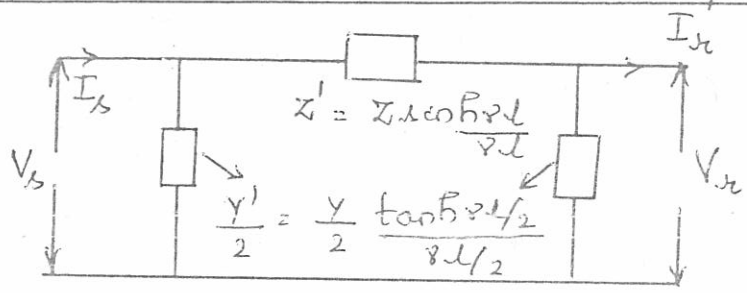 I_r
I_s
Z' = Z sinh γl / γl
V_s
V_r
Y'/2 = Y/2 tanh γl/2 / γl/2